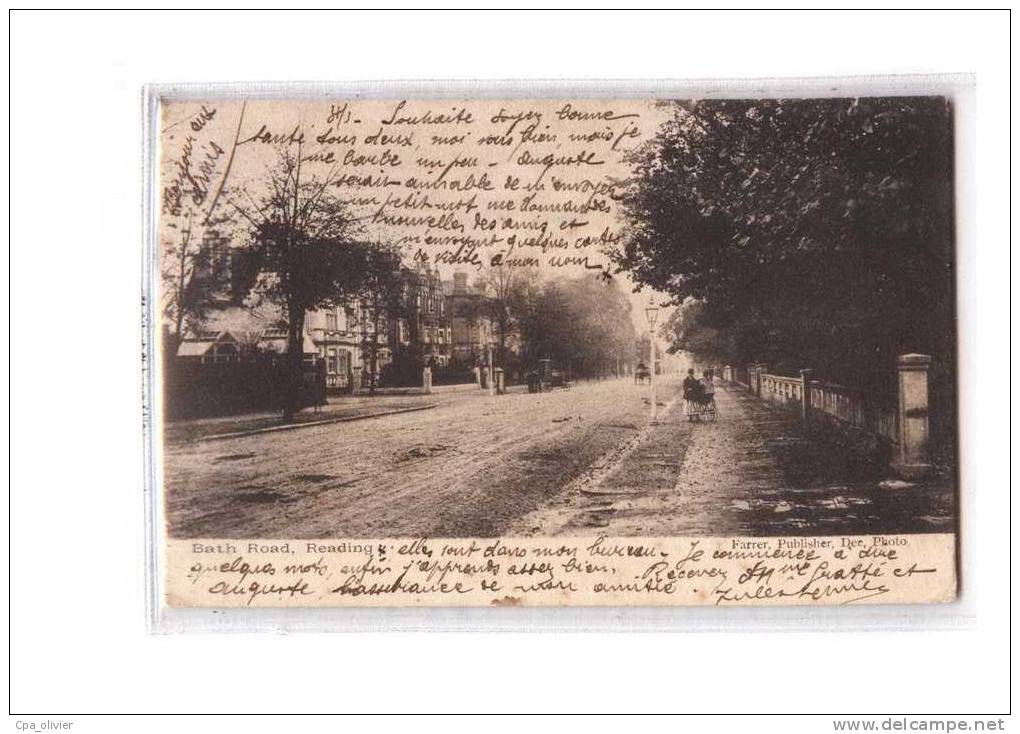 31/1 - Souhaite soyez bonne
santé tous deux, moi suis bien mais je
me barbe un peu - Auguste
serait aimable de m'envoyer
un petit mot me donnant des
nouvelles des amis et
m'envoyant quelques cartes
de visite, à mon nom
Bonjour aux
amis
Bath Road, Reading
Farrer, Publisher, Dee, Photo.
elles sont dans mon bureau - Je commence à dire
quelques mots, enfin j'apprends assez bien.
Recevez Mme Gratté et
Auguste l'assurance de mon amitié.
Cpa_olivier
www.delcampe.net